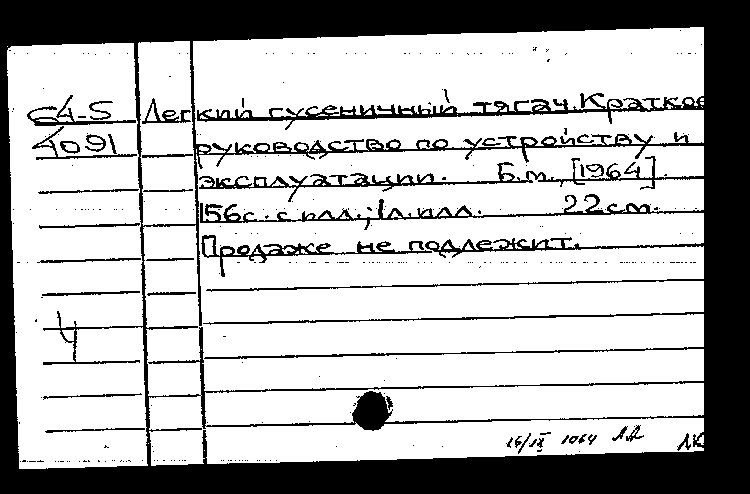 64-5 Легкий гусеничный тягач. Краткое
4091 руководство по устройству и
эксплуатации. Б.м., [1964].
156с. с илл.; 1л. илл. 22см.
Продаже не подлежит.
Ч
16/IX 1064 ЛК